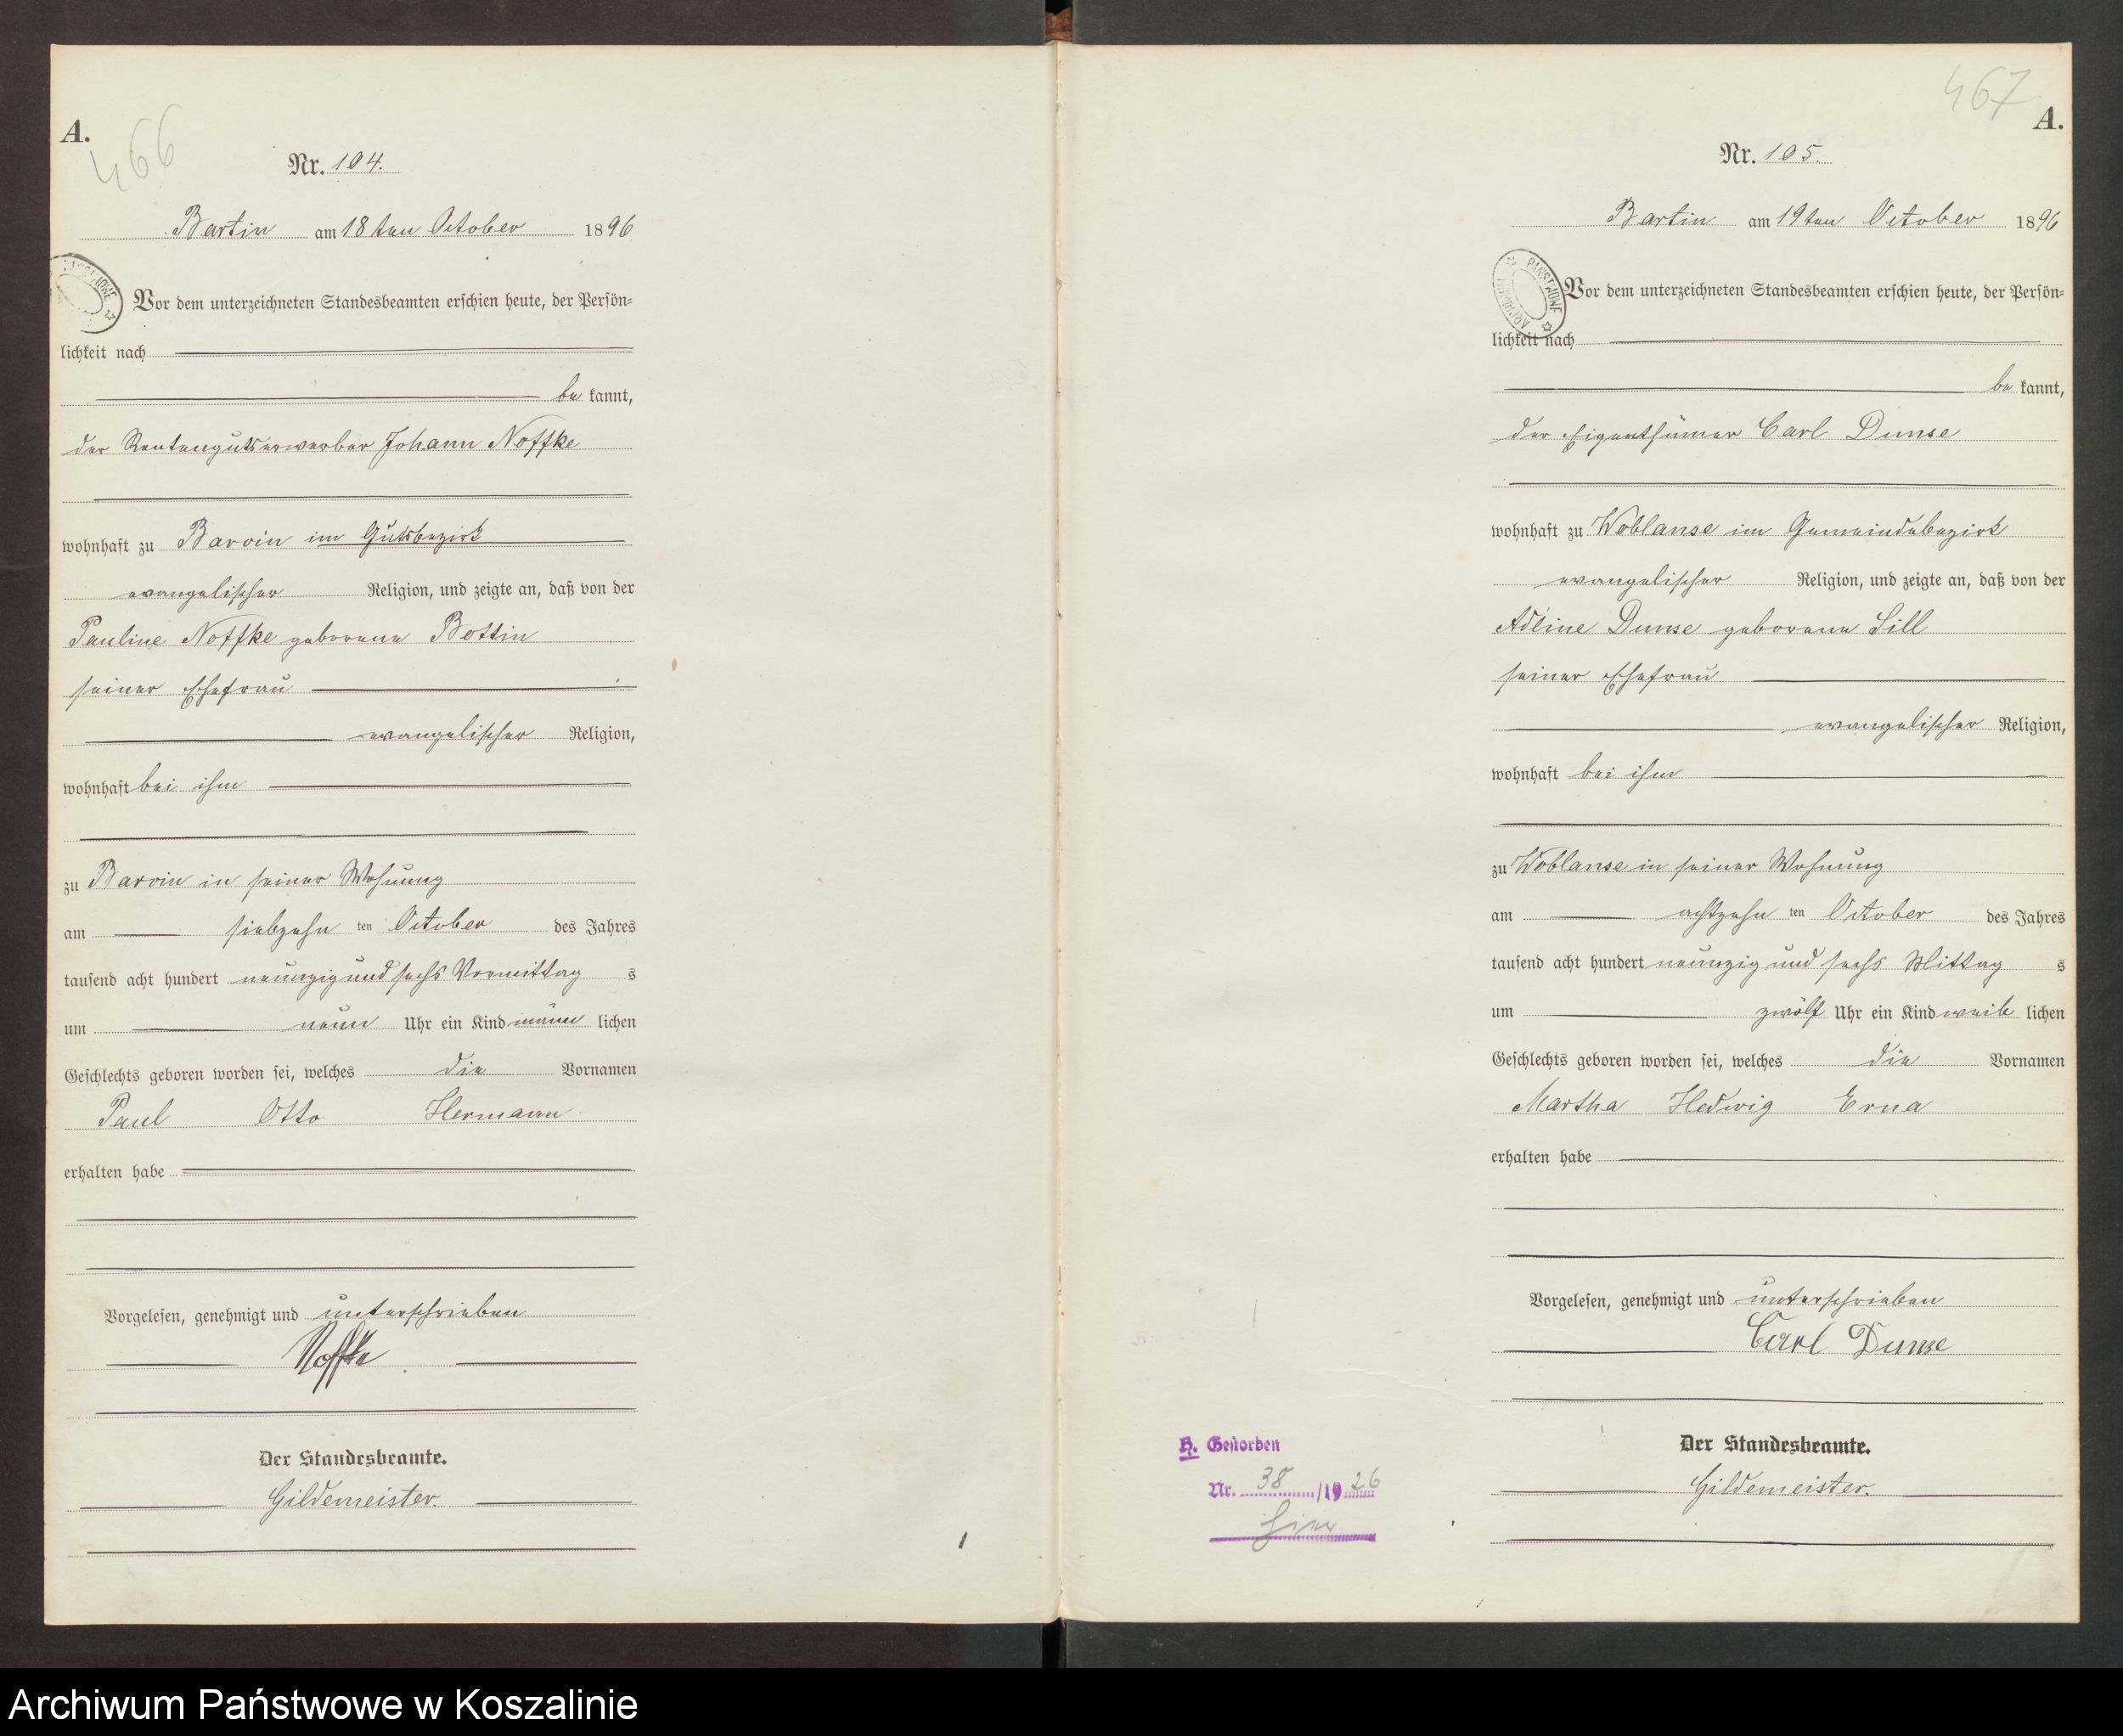 A.
466
Nr. 104.
Bartin am 18ten October 1896
Vor dem unterzeichneten Standesbeamten erschien heute, der Persön=
lichkeit nach
be kannt,
der Rentengutserwerber Johann Noffke
wohnhaft zu Barvin im Gutsbezirk
evangelischer Religion, und zeigte an, daß von der
Pauline Noffke geborene Bottin
seiner Ehefrau
evangelischer Religion,
wohnhaft bei ihm
zu Barvin in seiner Wohnung
am siebzehn ten October des Jahres
tausend acht hundert neunzig und sechs Vormittag s
um neun Uhr ein Kind männ lichen
Geschlechts geboren worden sei, welches die Vornamen
Paul Otto Hermann
erhalten habe
Vorgelesen, genehmigt und unterschrieben
Noffke
Der Standesbeamte.
Gildemeister.
467
A.
Nr. 105.
Bartin am 19ten October 1896
ARCHIWUM PAŃSTWOWE
Vor dem unterzeichneten Standesbeamten erschien heute, der Persön=
lichkeit nach
be kannt,
der Eigenthümer Carl Dunse
wohnhaft zu Woblanse im Gemeindebezirk
evangelischer Religion, und zeigte an, daß von der
Adline Dunse geborene Sill
seiner Ehefrau
evangelischer Religion,
wohnhaft bei ihm
zu Woblanse in seiner Wohnung
am achtzehn ten October des Jahres
tausend acht hundert neunzig und sechs Mittag s
um zwölf Uhr ein Kind weib lichen
Geschlechts geboren worden sei, welches die Vornamen
Martha Hedwig Erna
erhalten habe
Vorgelesen, genehmigt und unterschrieben
Carl Dunse
Der Standesbeamte.
Gildemeister.
H. Gestorben
Nr. 38 /1926
hier
Archiwum Państwowe w Koszalinie